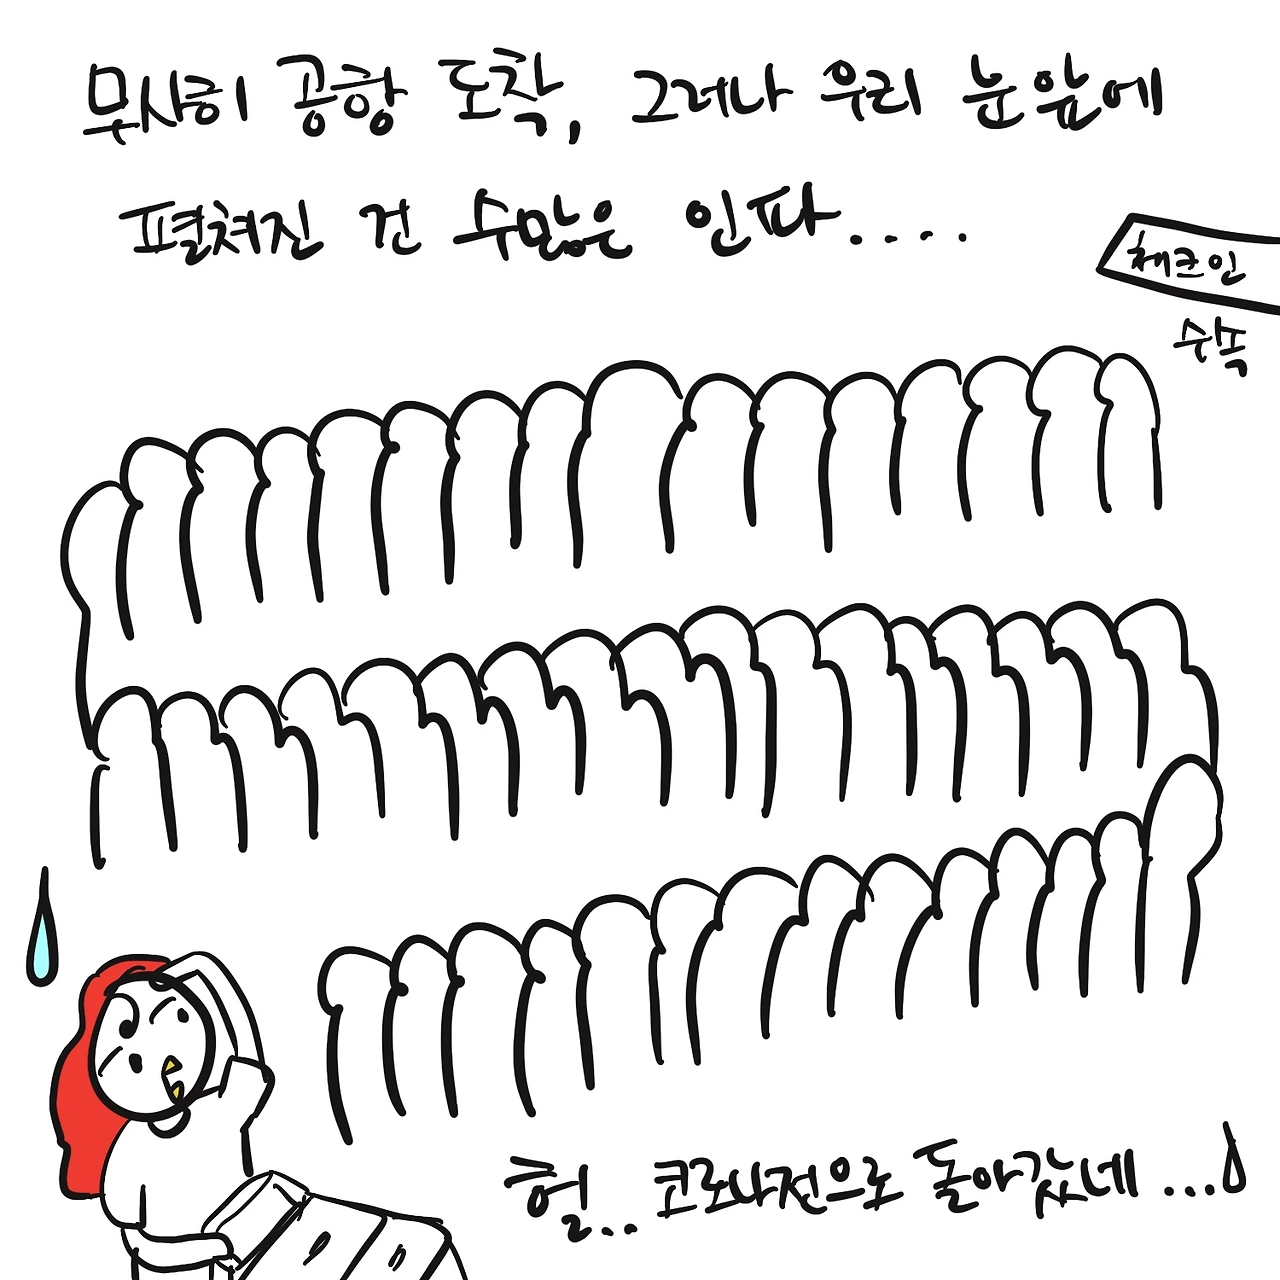 무사히 공항 도착, 그러나 우리 눈앞에
펼쳐진 건 수많은 인파....
체크인
수속
헐... 코로나전으로 돌아갔네...